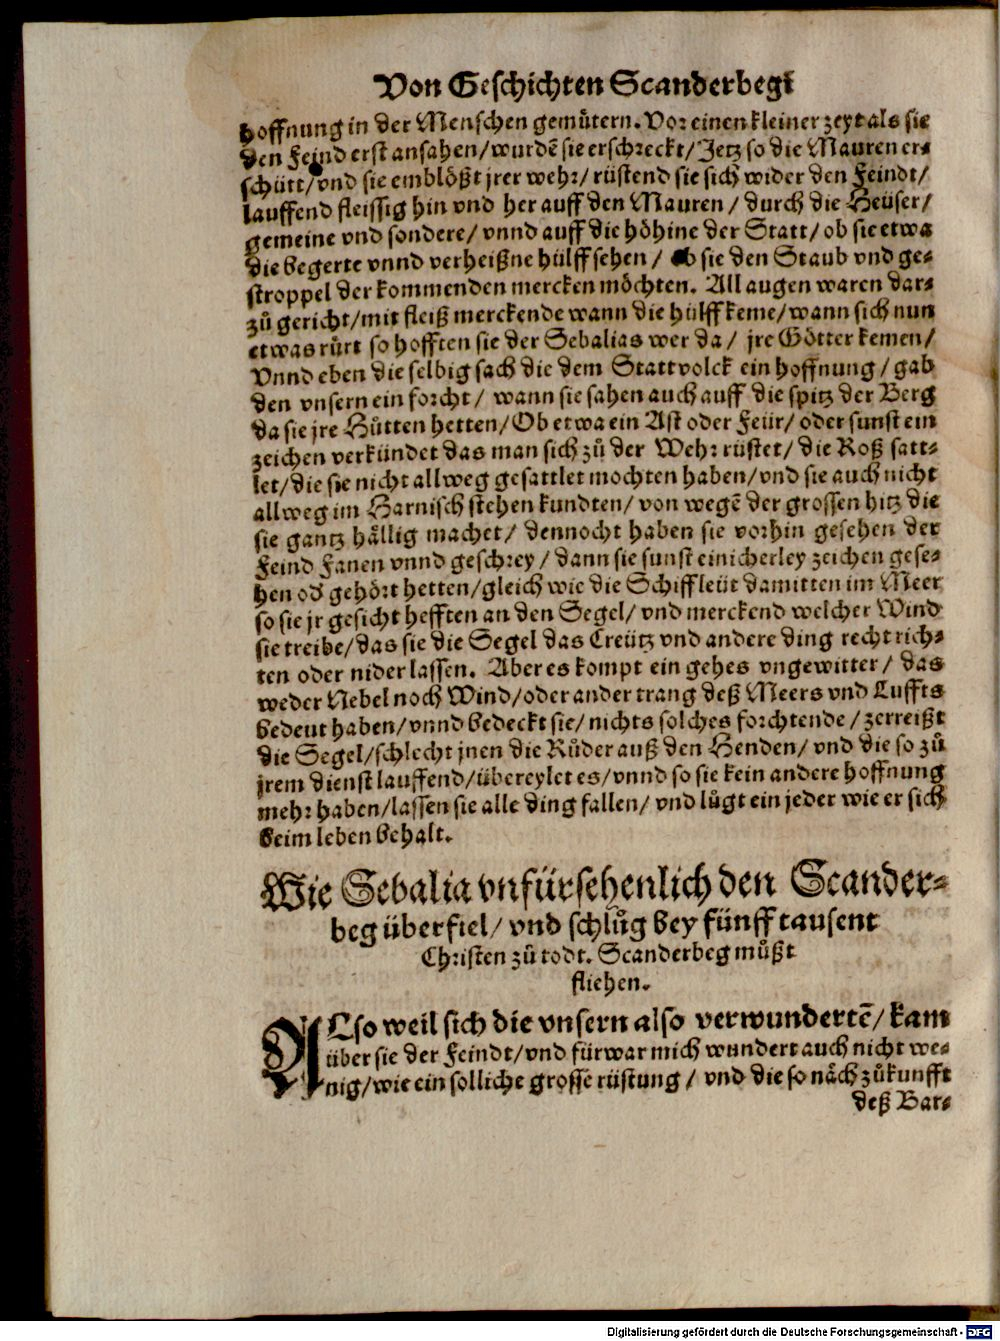 Von Geschichten Scanderbegi
hoffnung in der Menschen gemütern. Vor einen kleiner zeyt als sie
den Feind erst ansahen/wurdẽ sie erschreckt/Jetz so die Mauren er⸗
schütt/vnd sie emblößt jrer wehr/rüstend sie sich wider den Feindt/
lauffend fleissig hin vnd her auff den Mauren/durch die Heüser/
gemeine vnd sondere/vnnd auff die höhine der Statt/ob sie etwa
die begerte vnnd verheißne hülff sehen/ ob sie den Staub vnd ge⸗
stroppel der kommenden mercken möchten. All augen waren dar⸗
zů gericht/mit fleiß merckende wann die hülff keme/wann sich nun
etwas rürt so hofften sie der Sebalias wer da/ jre Götter kemen/
Vnnd eben die selbig sach die dem Stattvolck ein hoffnung/gab
den vnsern ein forcht/ wann sie sahen auch auff die spitz der Berg
da sie jre Hütten hetten/Ob etwa ein Ast oder Feür/oder sunst ein
zeichen verkündet das man sich zů der Wehr rüstet/die Roß satt⸗
let/die sie nicht allweg gesattlet mochten haben/vnd sie auch nicht
allweg im Harnisch stehen kundten/von wegẽ der grossen hitz die
sie gantz hällig machet/ dennocht haben sie vorhin gesehen der
Feind Fanen vnnd geschrey/dann sie sunst einicherley zeichen gese⸗
hen od gehört hetten/gleich wie die Schiffleüt damitten im Meer
so sie jr gesicht hefften an den Segel/vnd merckend welcher Wind
sie treibe/das sie die Segel das Creütz vnd andere ding recht rich⸗
ten oder nider lassen. Aber es kompt ein gehes vngewitter/das
weder Nebel noch Wind/oder ander trang deß Meers vnd Luffts
bedeut haben/vnnd bedeckt sie/nichts solches forchtende/zerreißt
die Segel/schlecht jnen die Rüder auß den Henden/vnd die so zů
jrem dienst lauffend/übereylet es/vnnd so sie kein andere hoffnung
mehr haben/lassen sie alle ding fallen/vnd lůgt ein jeder wie er sich
beim leben behalt.
Wie Sebalia vnfürsehenlich den Scander⸗
beg überfiel/vnd schlůg bey fünff tausent
Christen zů todt. Scanderbeg můßt
fliehen.
ALso weil sich die vnsern also verwundertẽ/kam
über sie der Feindt/vnd fürwar mich wundert auch nicht we⸗
nig/wie ein solliche grosse rüstung/vnd die so näch zůkunfft
deß Bar⸗
Digitalisierung gefördert durch die Deutsche Forschungsgemeinschaft - DFG